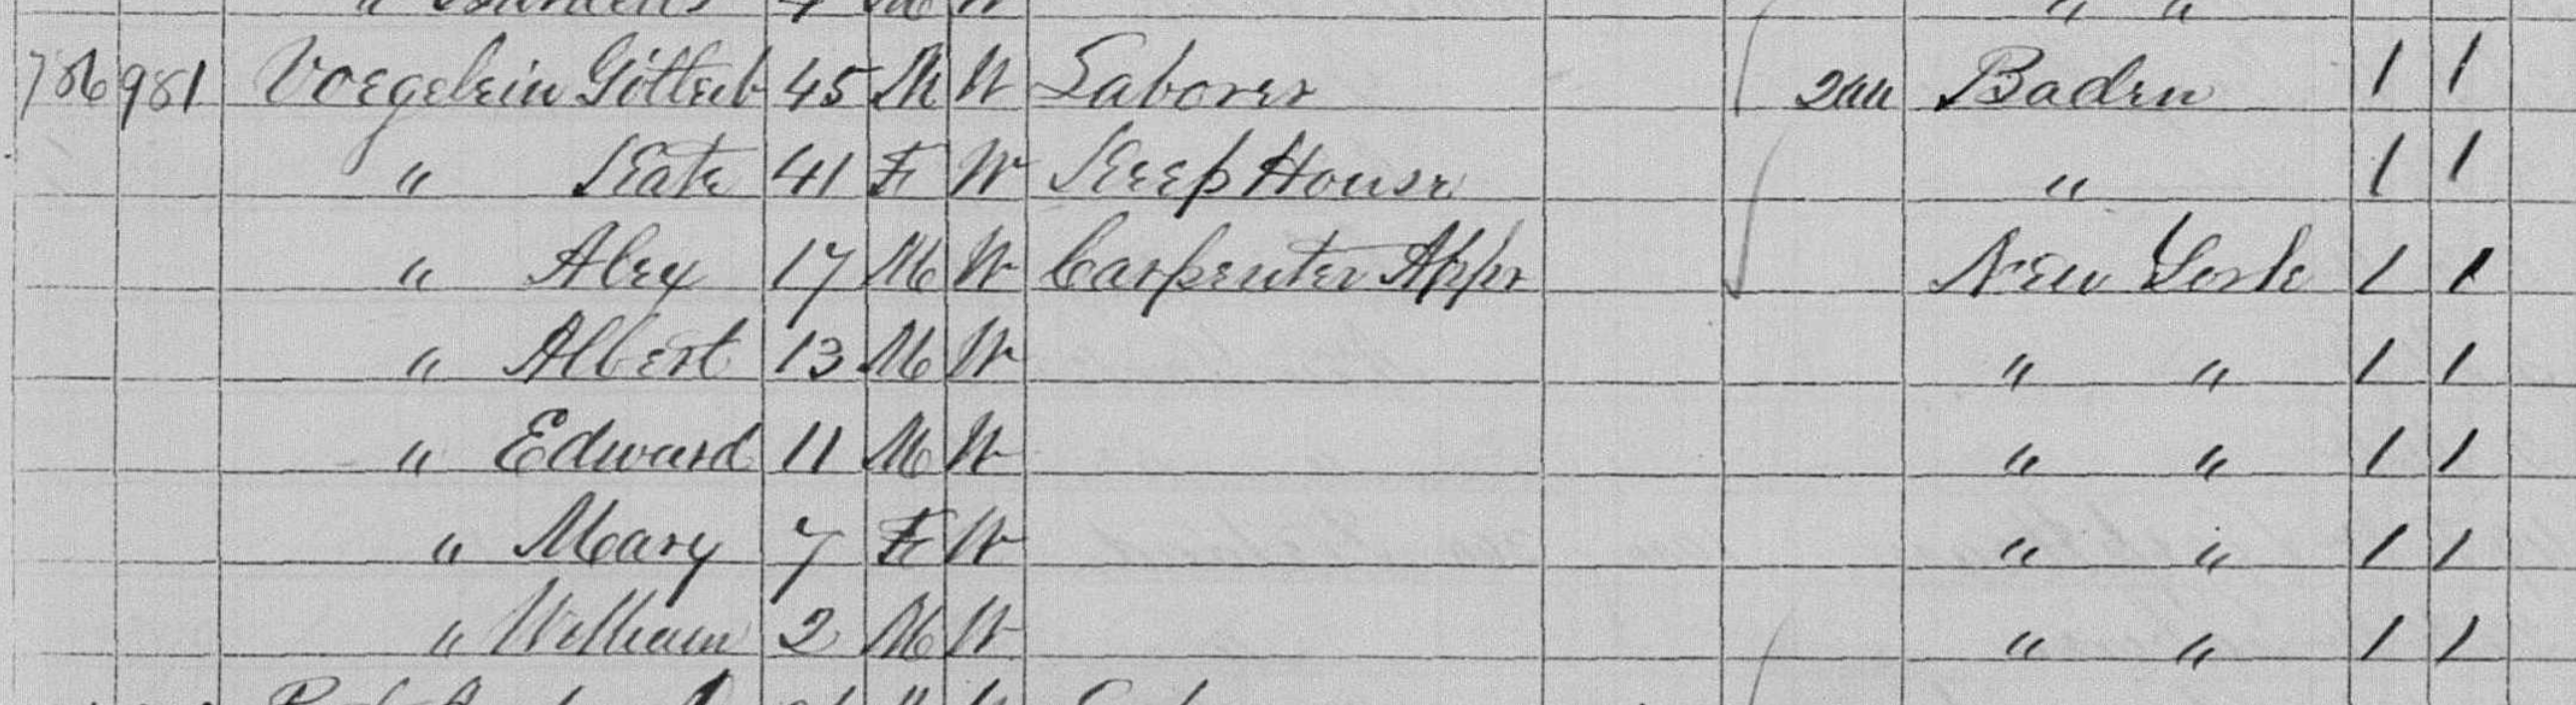 " 4 M W " "
786 981 Voegelein Gottleib 45 M W Laborer 200 Baden 1 1
" Kate 41 F W Keep House " 1 1
" Alex 17 M W Carpenter Appr New York 1 1
" Albert 13 M W " " 1 1
" Edward 11 M W " " 1 1
" Mary 7 F W " " 1 1
" William 2 M W " " 1 1